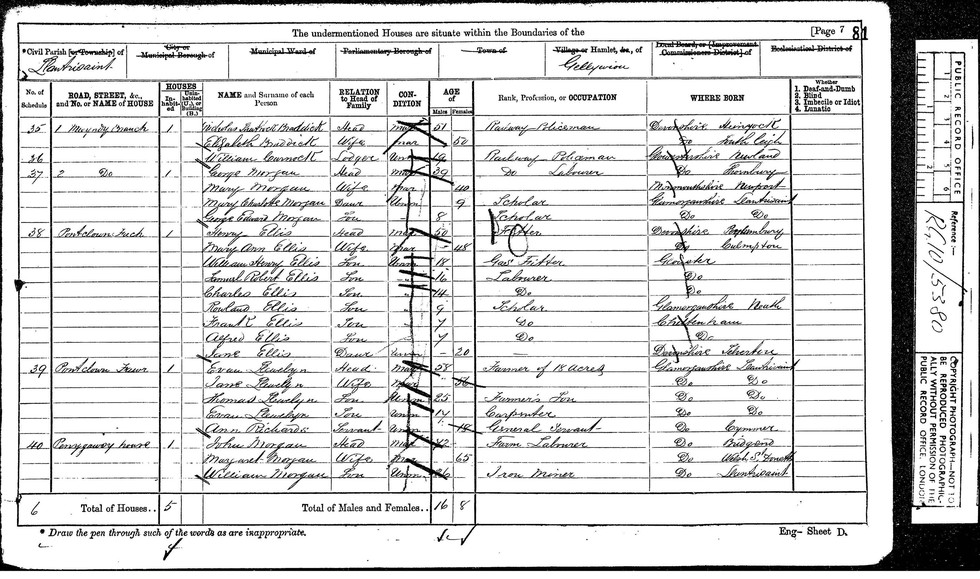 The undermentioned Houses are situate within the Boundaries of the
[Page 7 81
*Civil Parish [or Township] of
City or Municipal Borough of
Municipal Ward of
Parliamentary Borough of
Town of
Village or Hamlet, &c., of
Local Board, or [Improvement Commissioners District] of
Ecclesiastical District of
Llantrisaint
Gellywion
No. of Schedule
ROAD, STREET, &c., and No. or NAME of HOUSE
HOUSES
Inhabited
Uninhabited (U.), or Building (B.)
NAME and Surname of each Person
RELATION to Head of Family
CONDITION
AGE of
Males
Females
Rank, Profession, or OCCUPATION
WHERE BORN
Whether
1. Deaf-and-Dumb
2. Blind
3. Imbecile or Idiot
4. Lunatic
35 1 Maendy Branch 1 Nicholas Braddick Head Mar 51 Railway Policeman Devonshire
Elizabeth Braddick Wife Mar 50 Do North Leigh
36 William Curnock Lodger Unm 19 Railway Policeman Gloucestershire Newland
37 2 Do 1 George Morgan Head Mar 39 Do Labourer Do Thornbury
Mary Morgan Wife Mar 40 Monmouthshire Newport
Mary Charlotte Morgan Daur Unm 9 Scholar Glamorganshire Llantrisaint
George Edward Morgan Son 8 Scholar Do Do
38 Pontclown Fach 1 Henry Ellis Head Mar 50 Fitter Devonshire
Mary Ann Ellis Wife Mar 48 Do Culmpton
William Henry Ellis Son Unm 18 Gas Fitter Gloster
Samuel Robert Ellis Son 16 Labourer Do
Charles Ellis Son 14 Do Do
Rowland Ellis Son 9 Scholar Glamorganshire Neath
Frank Ellis Son 7 Do Cheltenham
Alfred Ellis Son 7 Do Do
Jane Ellis Daur Unm – 20 — Devonshire Tiverton
39 Pontclown Fawr 1 Evan Llewelyn Head Mar 58 Farmer of 18 Acres Glamorganshire Llantrisaint
Jane Llewelyn Wife Mar 56 Do Do
Thomas Llewelyn Son Unm 25 Farmer's Son Do Do
Evan Llewelyn Son Unm 17 Carpenter Do Do
Ann Richards Servant Unm 18 General Servant Do Cymmer
40 house 1 John Morgan Head Mar Farm Labourer Do Bridgend
Margaret Morgan Wife Mar 65 Do
William Morgan Son Unm 26 Iron Miner Do Llantrisaint
6 Total of Houses.. 5 Total of Males and Females.. 16 8
* Draw the pen through such of the words as are inappropriate.
Eng– Sheet D.
PUBLIC RECORD OFFICE
1 2 3 4 5 6
Reference :—
RG10/5380
COPYRIGHT PHOTOGRAPH—NOT TO BE REPRODUCED PHOTOGRAPHICALLY WITHOUT PERMISSION OF THE PUBLIC RECORD OFFICE, LONDON